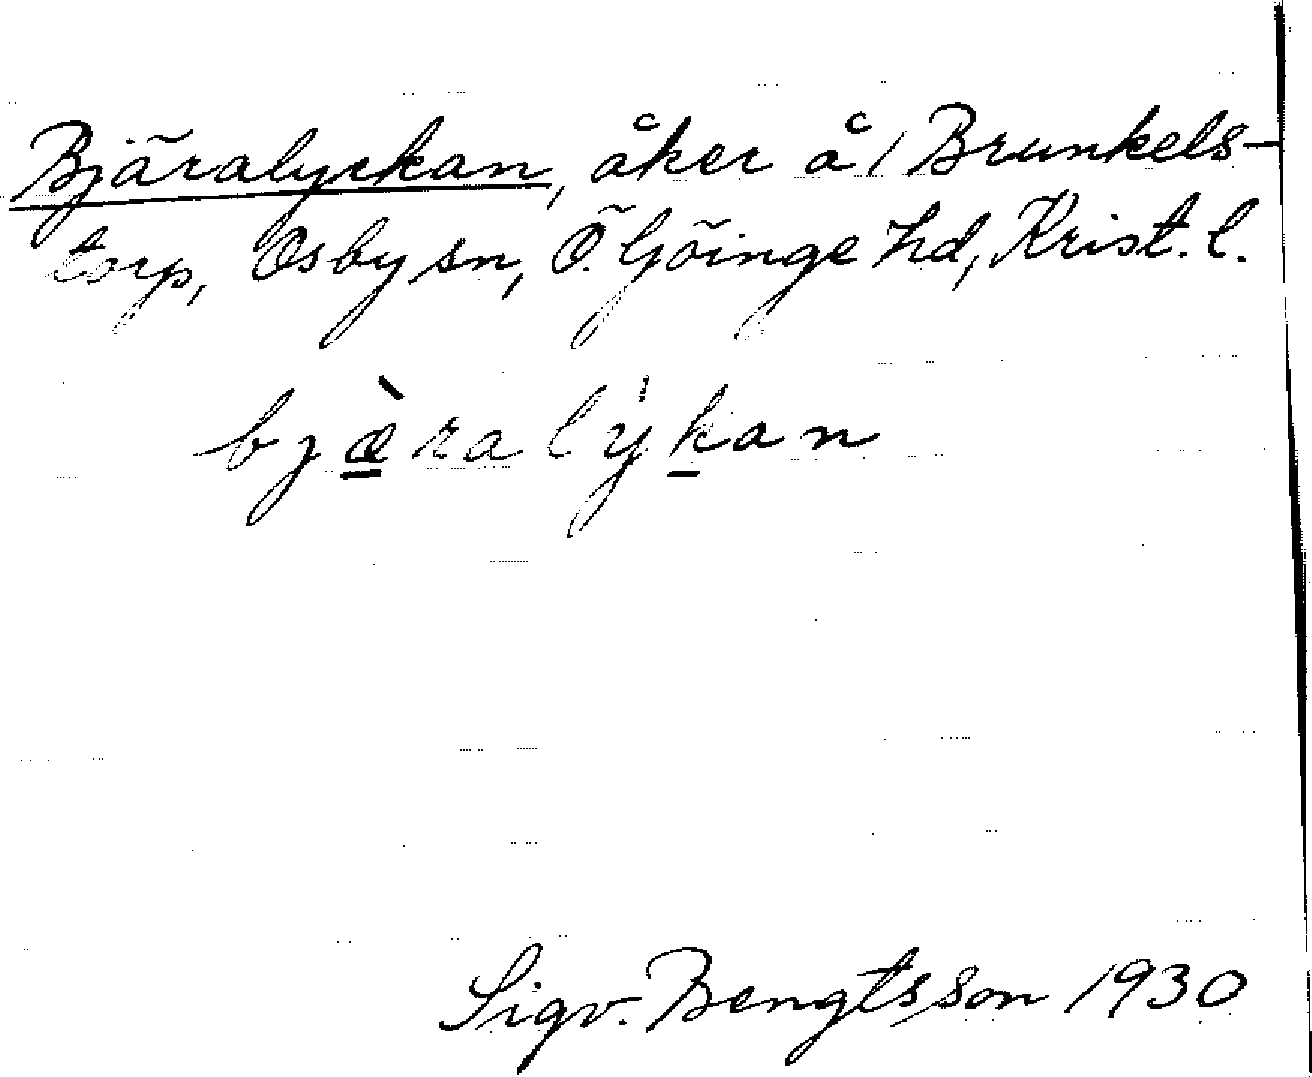 Bjäralyckan, åker å 1 Brunkels-
torp, Osby sn, Ö. Göinge hd, Krist. l.
bjæ̀ralýkan
Sigv. Bengtsson 1930